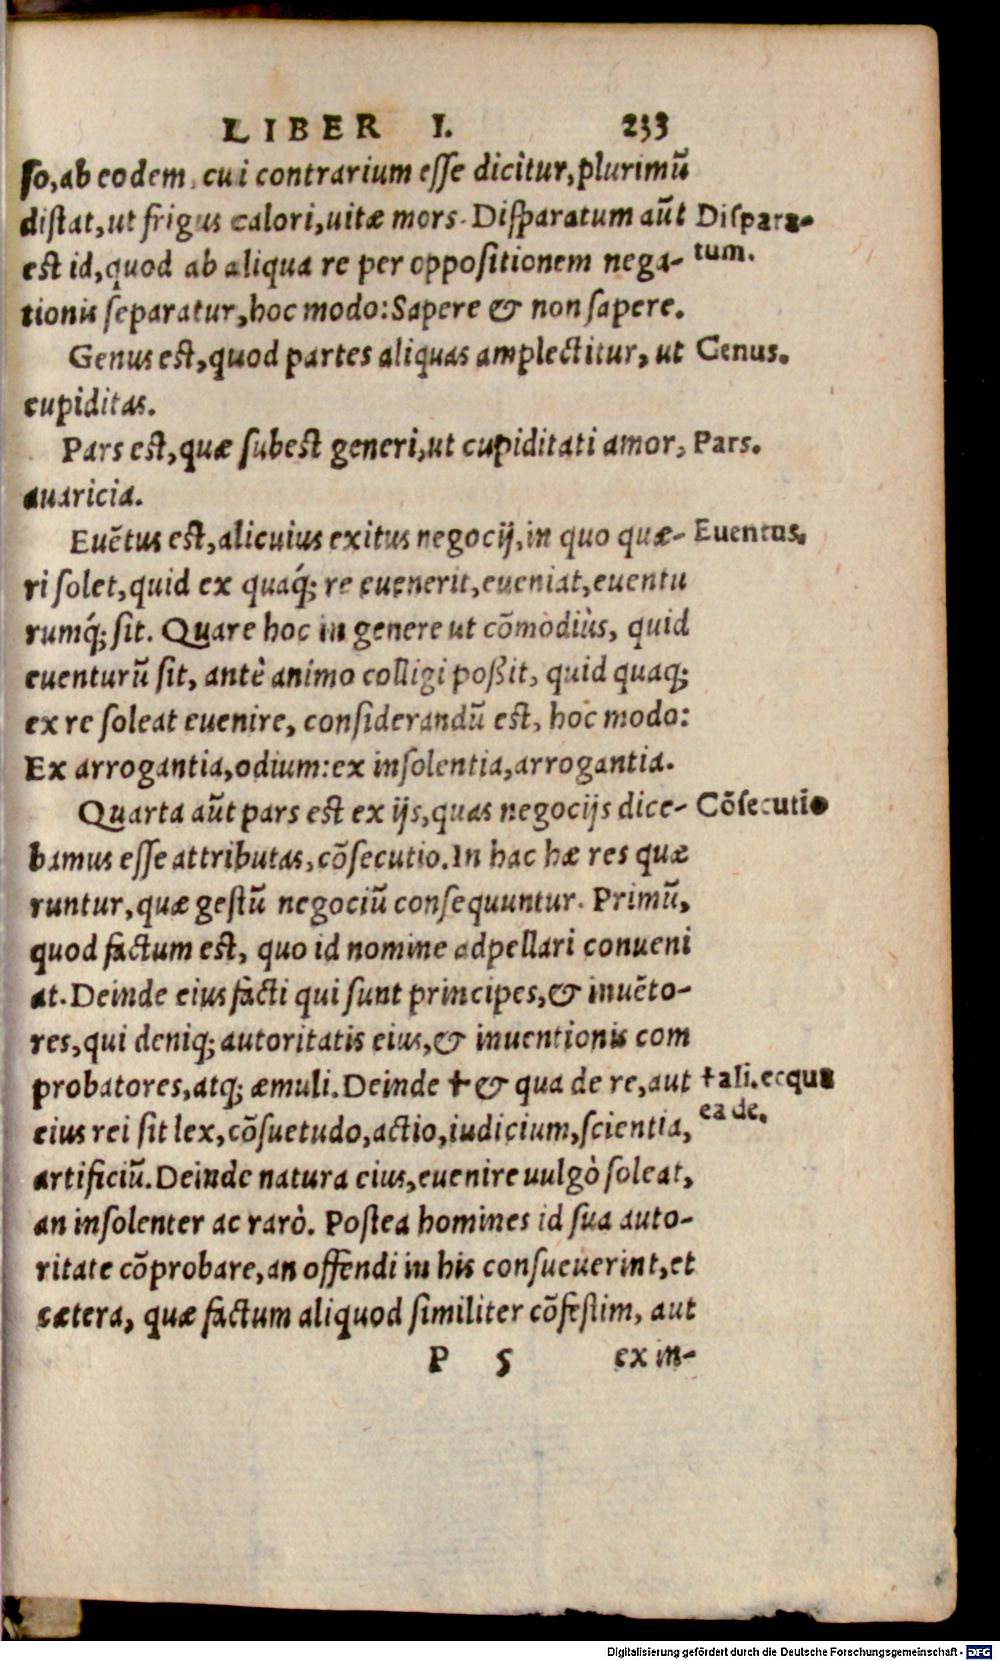 LIBER I. 233
so, ab eodem, cui contrarium esse dicitur, plurimũ
distat, ut frigus calori, uitæ mors. Disparatum aũt
Dispara-
est id, quod ab aliqua re per oppositionem nega-
tum.
tionis separatur, hoc modo: Sapere & non sapere.
Genus est, quod partes aliquas amplectitur, ut
Genus.
cupiditas.
Pars est, quæ subest generi, ut cupiditati amor,
Pars.
auaricia.
Euẽtus est, alicuius exitus negocij, in quo quæ-
Euentus.
ri solet, quid ex quaq́; re euenerit, eueniat, euentu
rumq́; sit. Quare hoc in genere ut cõmodiùs, quid
euenturũ sit, antè animo colligi poßit, quid quaq;
ex re soleat euenire, considerandũ est, hoc modo:
Ex arrogantia, odium: ex insolentia, arrogantia.
Quarta aũt pars est ex ijs, quas negocijs dice-
Cõsecutio
bamus esse attributas, cõsecutio. In hac hæ res quæ
runtur, quæ gestũ negociũ consequuntur. Primũ,
quod factum est, quo id nomine adpellari conueni
at. Deinde eius facti qui sunt principes, & inuẽto-
res, qui deniq; autoritatis eius, & inuentionis com
probatores, atq; æmuli. Deinde † & qua de re, aut
† ali. ecqua
ea de.
eius rei sit lex, cõsuetudo, actio, iudicium, scientia,
artificiũ. Deinde natura eius, euenire uulgò soleat,
an insolenter ac rarò. Postea homines id sua auto-
ritate cõprobare, an offendi in his consueuerint, et
cætera, quæ factum aliquod similiter cõfestim, aut
P 5 ex in-
Digitalisierung gefördert durch die Deutsche Forschungsgemeinschaft - DFG